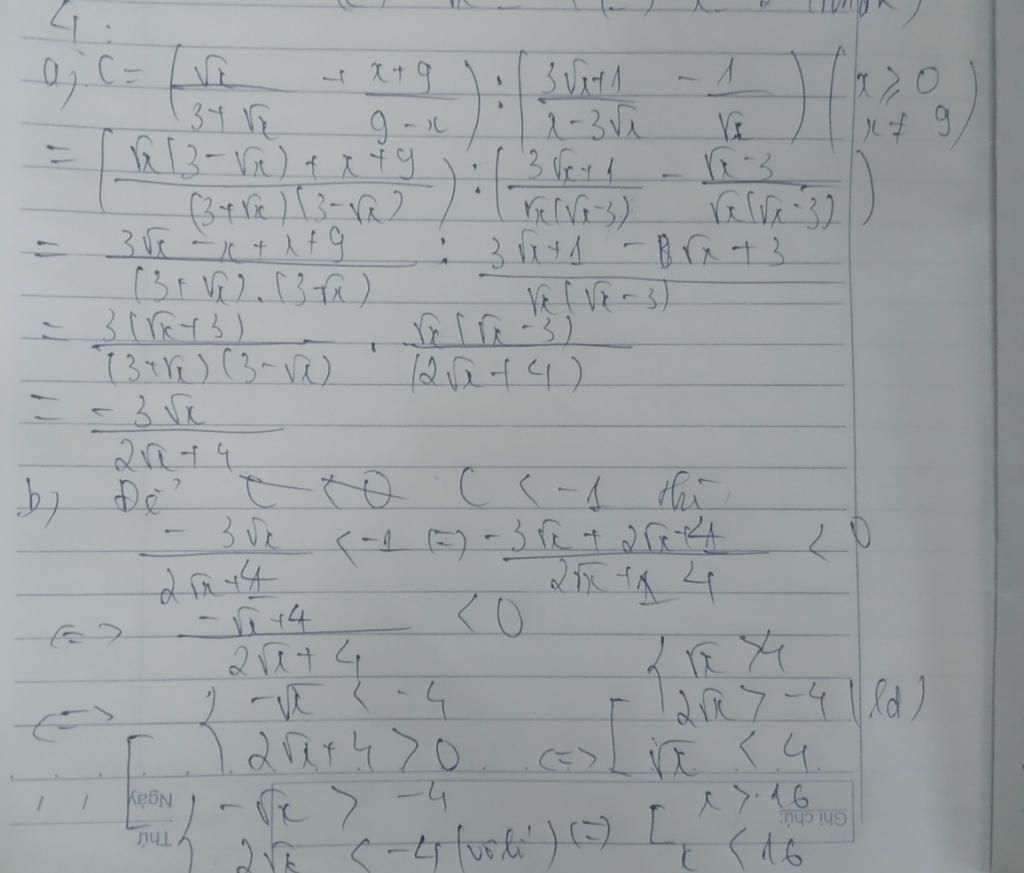 4.
a, C = (√x / (3+√x) + (x+9) / (9-x)) : ((3√x+1) / (x-3√x) - 1 / √x) (x ≥ 0 x ≠ 9)
= (√x(3-√x) + x + 9 / (3+√x)(3-√x)) : ((3√x+1) / √x(√x-3) - (√x-3) / √x(√x-3))
= (3√x - x + x + 9) / (3+√x).(3-√x) : (3√x+1 - √x + 3) / √x(√x-3)
= 3(√x+3) / (3+√x)(3-√x) . √x(√x-3) / (2√x+4)
= -3√x / (2√x+4)
b) Để C < 0 C < -1 thì
-3√x / (2√x+4) < -1 (=) (-3√x + 2√x+4) / (2√x+4) < 0
(=> (-√x+4) / (2√x+4) < 0
(=> [ { -√x < -4
2√x+4 > 0
{ -√x > -4
2√x < -4 (vô lí)
(=> [ { √x > 4
2√x > -4 (ld)
√x < 4
(=) [ x > 16
x < 16
Ngày
Thứ
Ghi chú: